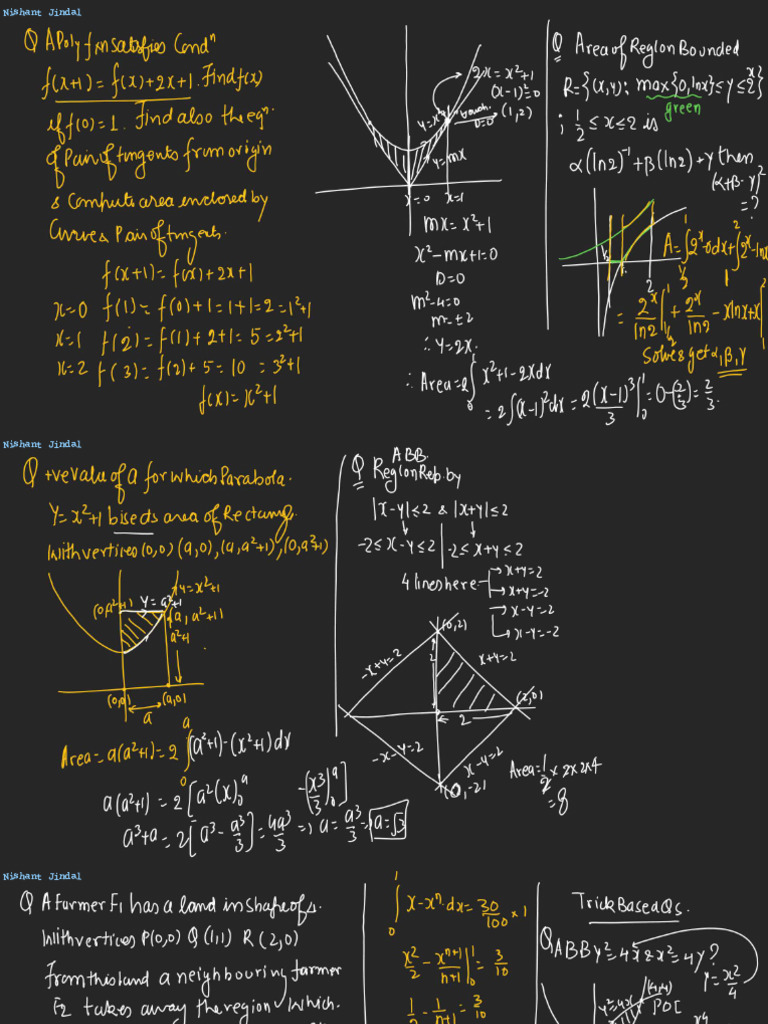 Nishant Jindal
Q A Poly fⁿ satisfies Condⁿ
f(x+1) = f(x)+2x+1. Find f(x)
if f(0)=1. Find also the eqⁿ.
of Pair of tangents from origin
& Compute area enclosed by
Curve & Pair of tangents.
f(x+1) = f(x)+2x+1
x=0 f(1) = f(0)+1 = 1+1 = 2 = 1²+1
x=1 f(2) = f(1)+2+1 = 5 = 2²+1
x=2 f(3) = f(2)+5 = 10 = 3²+1
f(x) = x²+1
2x = x²+1
(x-1)²=0
(1,2)
D=0
y=mx
x=0 x=1
mx = x²+1
x²-mx+1=0
D=0
m²-4=0
m=±2
∴ y=2x.
∴ Area = 2∫₀¹ x²+1-2x dx
= 2∫(x-1)²dx = 2(x-1)³/3 |₀¹ = 0-(-2/3) = 2/3.
Q Area of Region Bounded
R={(x,y): max{0,lnx} ≤ y ≤ 2ˣ
green
; 1/2 ≤ x ≤ 2 is
α(ln2)⁻¹+β(ln2)+γ then
(α+β-γ)²
= ?
A = ∫2ˣ-0dx + ∫2ˣ-lnx
= 2ˣ/ln2 | + 2ˣ/ln2 - xlnx+x |
Solve & get α,β,γ
Nishant Jindal
Q +ve value of a for which Parabola.
Y=x²+1 bisects area of Rectangle
With vertices (0,0) (a,0), (a,a²+1), (0,a²+1)
(0,a²+1) y=a²+1 y=x²+1
(a, a²+1)
a²+1
(0,0) (a,0)
a
Area = a(a²+1) = 2∫₀ᵃ (a²+1)-(x²+1)dx
a(a²+1) = 2[a²(x)₀ᵃ -(x³/3)₀ᵃ]
a³+a = 2[a³-a³/3] = 4a³/3 ⇒ a = a³/3 ⇒ a=√3
ABB.
Q Region Rep. by
|x-y|≤2 & |x+y|≤2
-2≤x-y≤2 | -2≤x+y≤2
4 lines here
x+y=2
x+y=-2
x-y=2
x-y=-2
(0,2)
-x+y=2 x+y=2
2
(2,0)
2
-x-y=2 x-y=2
(0,-2)
Area = 1/2 × 2×2×4
= 8
Nishant Jindal
Q A farmer F₁ has a land in shape of Δ.
With vertices P(0,0) Q(1,1) R(2,0)
From this land a neighbouring farmer
F₂ takes away the region which.
∫₀¹ x-xⁿ dx = 30/100 × 1
x²/2 - xⁿ⁺¹/n+1 |₀¹ = 3/10
1/2 - 1/n+1 = 3/10
Trick Based Qs.
Q ABB y²=4x & x²=4y?
y=x²/4
y²=4x (4,4)